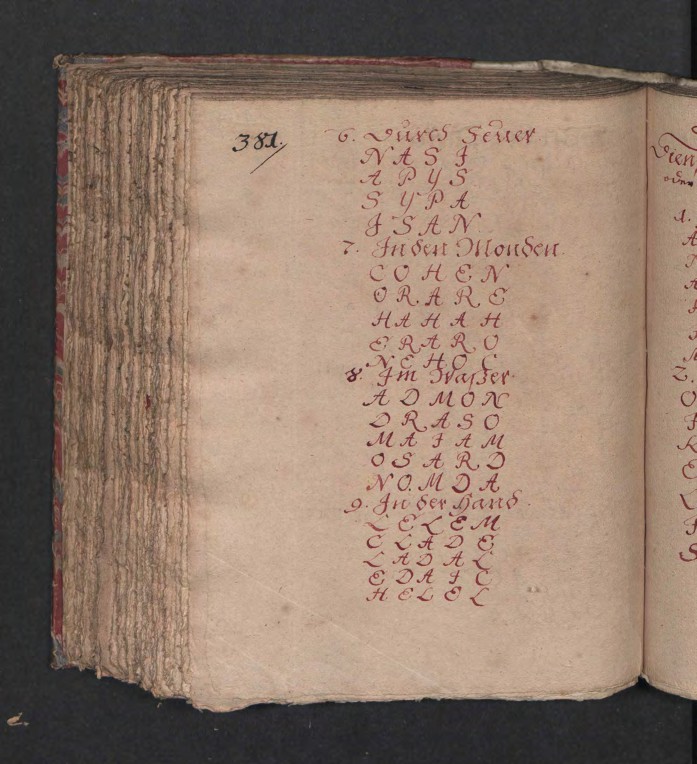 381.
6. Durch Feuer
N A S I
A P Y S
S Y P A
I S A N
7. In den Monden
C O H E N
O R A R E
H A H A H
E R A R O
N E H O C
8. Im Waßer
A D M O N
D R A S O
M A I A M
O S A R D
N O M D A
9. In der Hand
L E L E M
E L A D E
L A D A L
E D A I C
H E L E L
Dien
oder
1.
A
A
2.
O